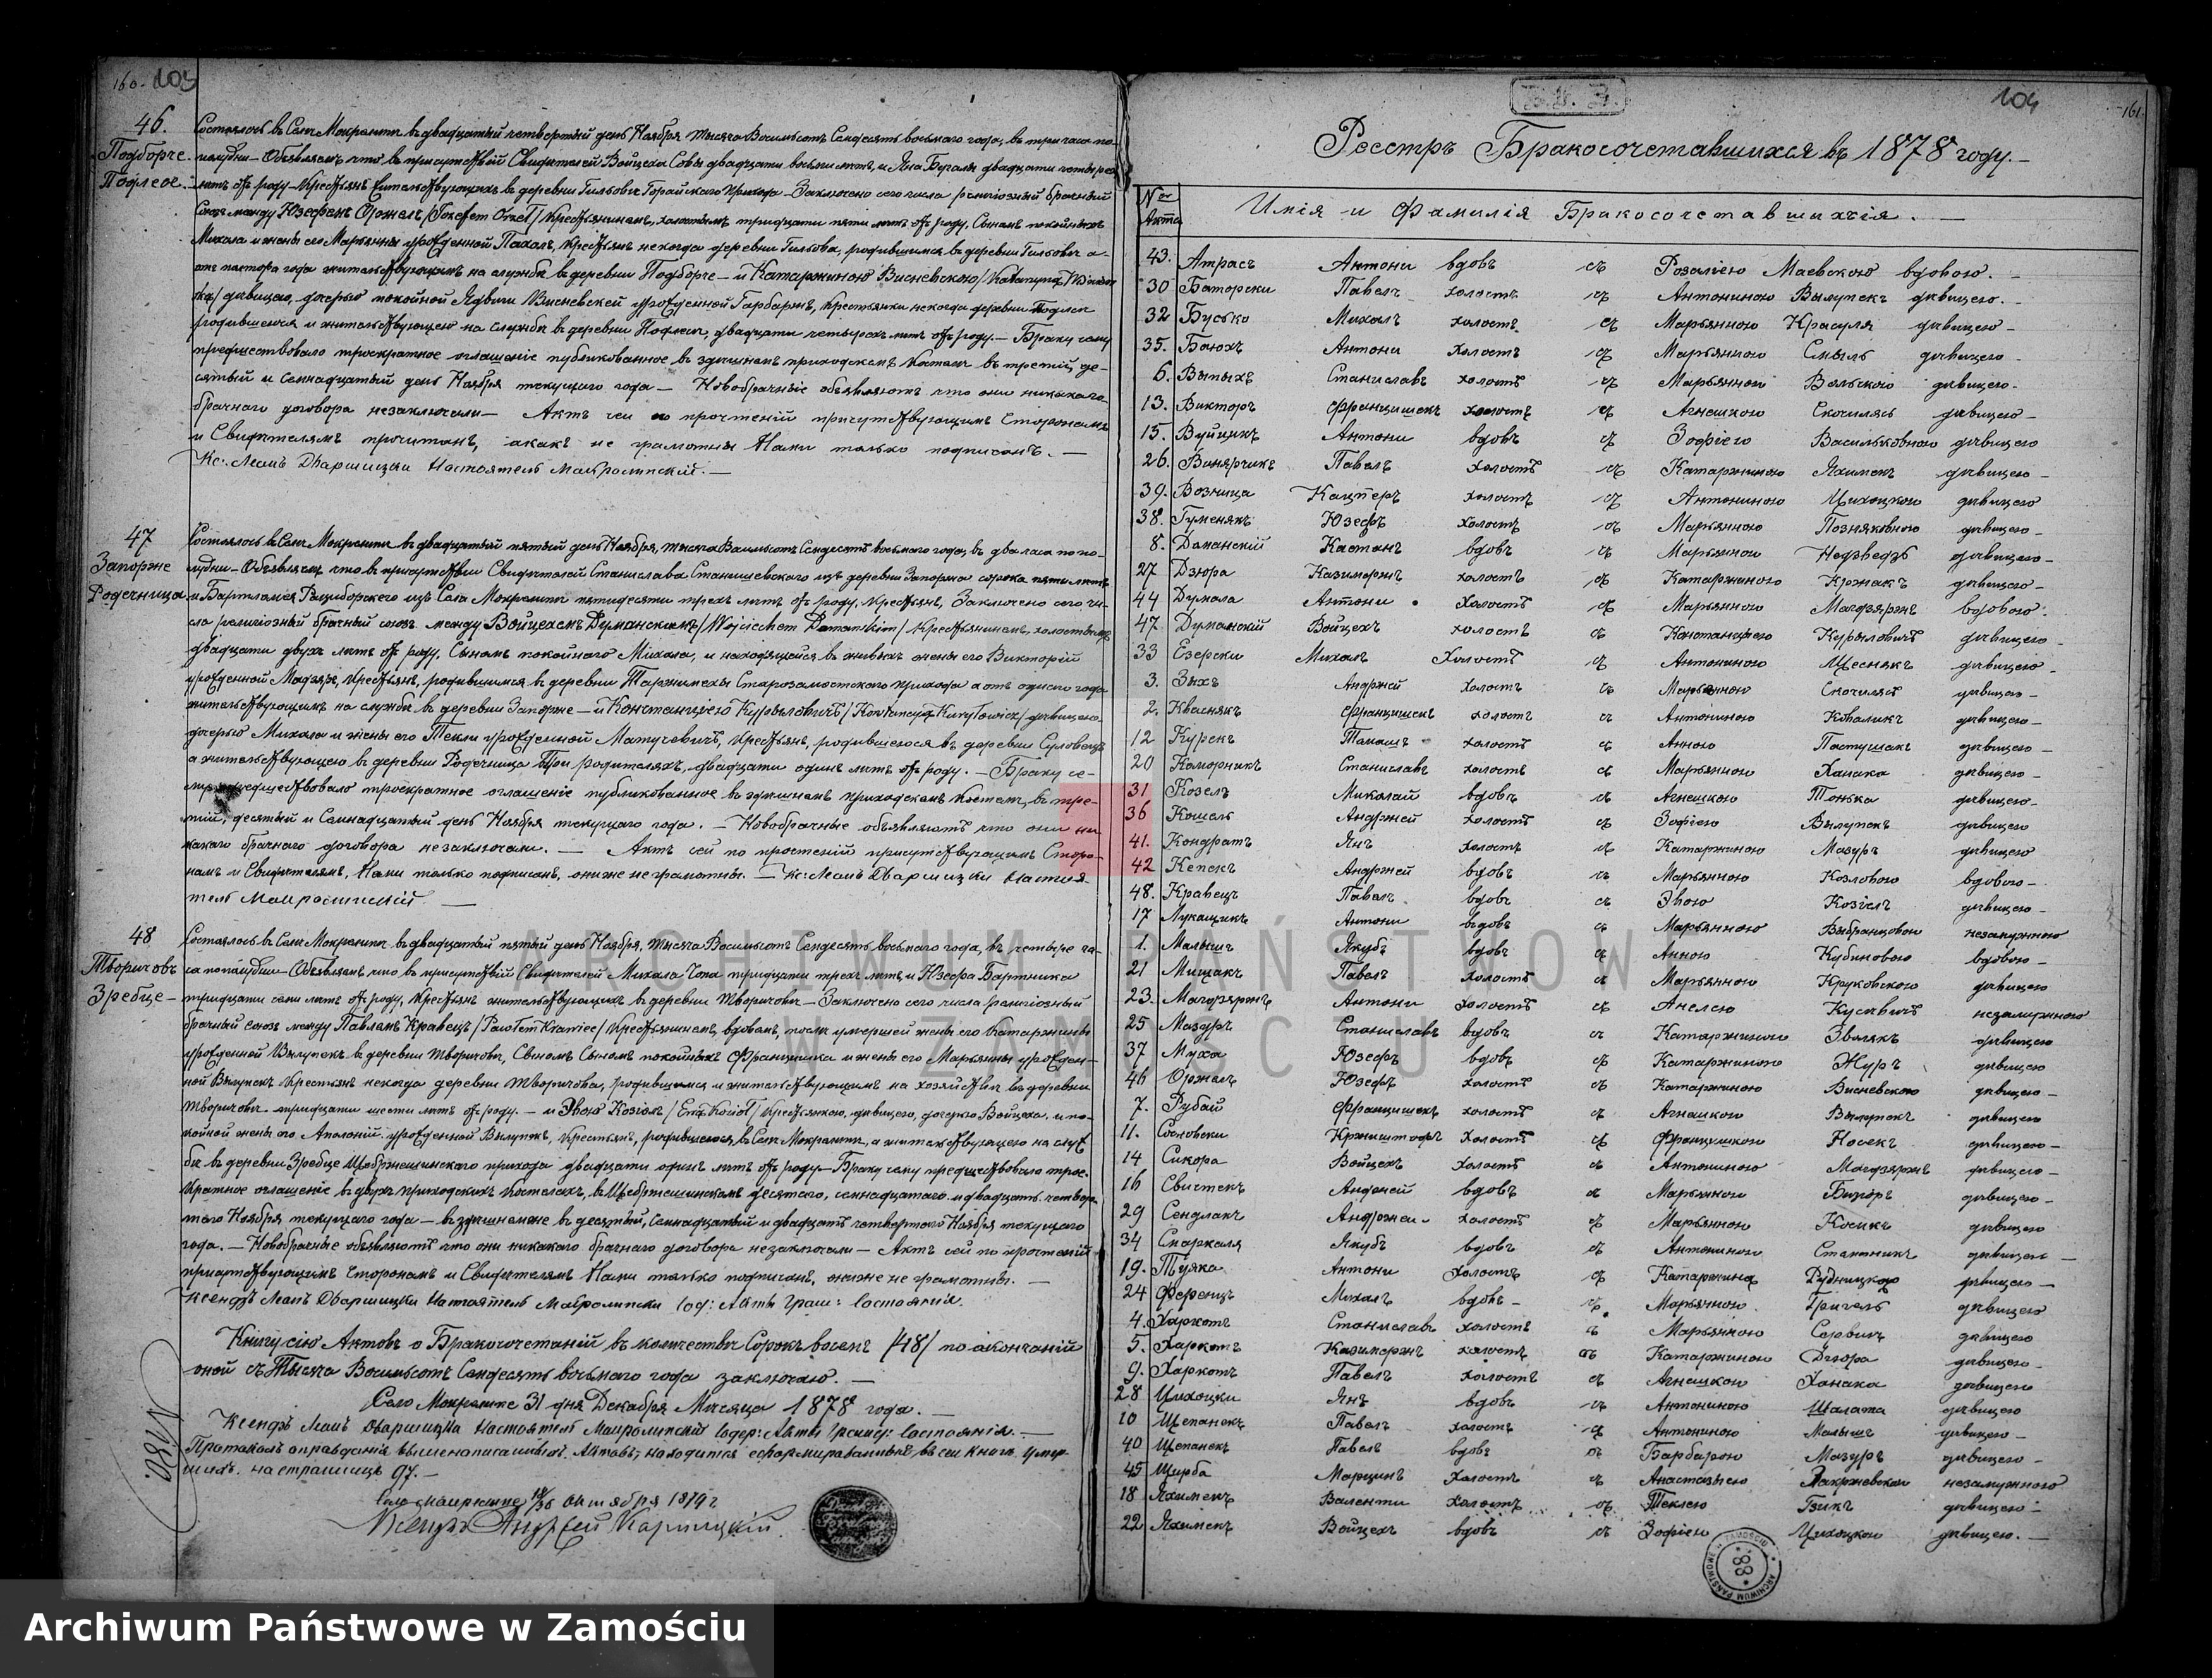 160. 103
46.
Подборче.
Подлесе.
Состоялось въ Селѣ Мокрелипѣ въ двадцатый четвертый день Ноября тысяча Восимьсотъ Семдесятъ восьмаго года, въ три часа по-
полудни — Объявляемъ что въ присутствіи Свидѣтелей Войцеха Совы двадцати восьми лѣтъ, и Яна двадцати четырехъ
лѣтъ отъ роду — Крестьянъ жительствующихъ въ деревни Горайскаго прихода — Заключено сего числа религіозный брачный
Союзъ между Юзефомъ Оржелъ /Józefem Orzeł/ Крестьяниномъ, холостымъ тридцати пяти лѣтъ отъ роду, Сыномъ покойныхъ
Михала и жены его Марьянны урожденной Пахалъ, Крестьянъ некогда деревни родившимся въ деревни а
отъ полтора года жительствующимъ на службѣ въ деревни Подборче — и Катаржиною Висневскою /Katarzyną
дѣвицею, дочерью покойной Ядвиги Висневской урожденной Гарбаржъ, Крестьянки некогда деревни Подлесе
родившеюся и жительствующею на службѣ въ деревни Подлесе, двадцати четырехъ лѣтъ отъ роду. — Браку сему
предшествовало троекратное оглашеніе публикованное въ здешнемъ приходскомъ Костелѣ въ третій, де-
сятый и семнадцатый день Ноября текущаго года — Новобрачные объявляютъ что они никакого
брачнаго договора незаключали — Актъ сей по прочтеніи присутствующимъ Сторонамъ
и Свидѣтелямъ прочитанъ, а какъ не грамотны Нами только подписанъ. —
Кс: Леонъ Дваршицки Настоятель Мокролипскій. —
47
Запорже
Родечница.
Состоялось въ Селѣ Мокрелипѣ въ двадцатый пятый день Ноября, тысяча Восимьсотъ Семдесятъ восьмаго года, въ два часа попо-
лудни — Объявляемъ что въ присутствіи Свидѣтелей Станислава Станишевскаго изъ деревни Запоржа сорока пяти лѣтъ
и Бартломея Рациборскаго изъ Села Мокрелипе пятидесяти трехъ лѣтъ отъ роду, Крестьянъ, Заключено сего чи-
сла религіозный брачный союзъ между Войцехомъ Думанскимъ /Wojciechem Dumańskim/ Крестьяниномъ, холостымъ
двадцати двухъ лѣтъ отъ роду, Сыномъ покойнаго Михала, и находящейся въ живыхъ жены его Викторіи
урожденной Крестьянъ, родившимся въ деревни Таржимехы Старозамостскаго прихода а отъ одного года
жительствующимъ на службѣ въ деревни Запорже — и Констанціею Курыловичъ /Konstancyą Kuryłowicz/ дѣвицею
дочерью Михала и жены его Текли урожденной Матусевичъ, Крестьянъ, родившеюся въ деревни Суловецъ
а жительствующею въ деревни Родечница при родителяхъ, двадцати одинъ лѣтъ отъ роду. — Браку се-
му предшествовало троекратное оглашеніе публикованное въ здешнемъ приходскомъ Костелѣ, въ тре-
тій, десятый и Семнадцатый день Ноября текущаго года. — Новобрачные объявляютъ что они ни
какаго брачнаго договора незаключали. — Актъ сей по прочтеніи присутствующимъ Сторо-
намъ и Свидѣтелямъ, Нами только подписанъ, они же не грамотны. — Кс: Леонъ Дваршицки Настоя-
тель Мокролипскій —
48
Творичовъ
Зребце —
Состоялось въ Селѣ Мокрелипѣ въ двадцатый пятый день Ноября, тысяча Восимьсотъ Семдесятъ восьмаго года, въ четыре ча-
са пополудни — Объявляемъ что, въ присутствіи Свидѣтелей Михала Чепа тридцати трехъ лѣтъ и Юзефа Бартника
тридцати семи лѣтъ отъ роду, Крестьянъ жительствующихъ въ деревни Творичовѣ — Заключено сего числа религіозный
брачный союзъ между Павломъ Кравецъ /Pawłem Krawiec/ Крестьяниномъ, вдовымъ, послѣ умершей жены его Катаржины
урожденной Вылупекъ въ деревни Творичовѣ, Сыномъ покойныхъ Францишка и жены его Марьянны урожден-
ной Вылупекъ Крестьянъ некогда деревни Творичова, родившимся и жительствующимъ на хозяйствѣ въ деревни
Творичовѣ тридцати шести лѣтъ отъ роду. — и Эвою Козіолъ /Ewą Kozioł/ Крестьянкою, дѣвицею, дочерью Войцеха, и по-
койной жены его Аполоніи урожденной Вылупекъ, Крестьянъ, родившеюся въ Селѣ Мокрелипѣ, а жительствующею на служ
бѣ въ деревни Зребце Щебржешинскаго прихода двадцати одинъ лѣтъ отъ роду — Браку сему предшествовало трое-
кратное оглашеніе въ двухъ приходскихъ Костелахъ, въ Щебржешинскомъ десятаго, семнадцатаго и двадцать четвер
таго Ноября текущаго года — въ здешнемъ же въ десятый, семнадцатый и двадцать четвертаго Ноября текущаго
года. — Новобрачные объявляютъ что они никакаго брачнаго договора незаключали — Актъ сей по прочтеніи
присутствующимъ Сторонамъ и Свидѣтелямъ Нами только подписанъ, они же не грамотны. —
Ксендзъ Леонъ Дваршицки Настоятель Мокролипски Сод: Акты Граж: Состоянія.
Книгу сію Актовъ о Бракосочетаній въ количествѣ Сорокъ восемь /48/ по окончаній
оной съ Тысяча Восимьсотъ Семдесятъ восьмаго года заключаю. —
Село Мокрелипе 31 дня Декабря Мѣсяца 1878 года. —
Ксендзъ Леонъ Дваршицки Настоятель Мокролипскій Содер: Акты Гражд: Состоянія. —
Протоколъ оправданія вышенаписанныхъ Актовъ, находится въ сей книгѣ Умер
шихъ на страницѣ 97. —
Село Мокрелипе 18/30 Октября 1879 г
Ксендзъ Андрей
104
161.
Реестръ Бракосочетавшихся въ 1878 году. —
№ Акта
Имія и Фамилія Бракосочетавшихсія. —
43. Атрасъ Антони вдовъ съ Розаліею Маевскою вдовою. —
30 Баторски Павелъ холостъ съ Антониною Вылупекъ дѣвицею. —
32 Бусько Михалъ холостъ съ Марьянною Красуля дѣвицею —
35. Баюхъ Антони холостъ съ Марьянною Смыль дѣвицею —
6. Выпыхъ Станиславъ холостъ съ Марьянною Вольскою дѣвицею —
13. Викторъ Францишекъ холостъ съ Агнешкою Скочилясъ дѣвицею —
15. Вуйцикъ Антони вдовъ съ Зофіею Васильковною дѣвицею
26. Винярчикъ Павелъ холостъ съ Катаржиною Яхимекъ дѣвицею —
39. Возница Кацперъ холостъ съ Антониною Цихоцкою дѣвицею
38. Гуменякъ Юзефъ холостъ съ Марьянною Позняковною дѣвицею —
8. Даманскій Каетанъ вдовъ съ Марьянною Недзведзь дѣвицею —
27 Дзюра Казимержъ холостъ съ Катаржиною Кржакъ дѣвицею —
44 Думала Антони холостъ съ Марьянною Магдзяржъ вдовою.
47 Думанскій Войцехъ холостъ съ Констанціею Курыловичъ дѣвицею —
33 Езерски Михалъ Холостъ съ Антониною Щеснякъ дѣвицею —
3. Зыхъ Андржей холостъ съ Марьянною Скочилясъ дѣвицею —
2. Кваснякъ Францишекъ холостъ съ Антониною Коваликъ дѣвицею —
12 Курекъ Томашъ холостъ съ Анною Пастушакъ дѣвицею —
20 Коморникъ Станиславъ холостъ съ Марьянною Ханака дѣвицею —
31 Козелъ Миколай вдовъ съ Агнешкою Тонька дѣвицею —
36 Кошель Андржей холостъ съ Зофіею Вылупекъ дѣвицею
41. Кондратъ Янъ холостъ съ Катаржиною Мазуръ дѣвицею
42 Кепекъ Андржей вдовъ съ Марьянною Козловою вдовою —
48. Кравецъ Павелъ вдовъ съ Эвою Козіелъ дѣвицею —
17 Лукащикъ Антони вдовъ съ Марьянною Выбранцовою незамужною
1. Малышъ Якубъ вдовъ съ Анною Кубиновою вдовою —
21 Мищакъ Павелъ холостъ съ Марьянною Круковскою дѣвицею
23. Магдзяржъ Антони холостъ съ Анелею Кусевичъ незамужною
25 Мазуръ Станиславъ вдовъ съ Катаржиною Звалякъ дѣвицею
37 Муха Юзефъ вдовъ съ Катаржиною Журъ дѣвицею
46 Оржелъ Юзефъ холостъ съ Катаржиною Висневскою дѣвицею —
7. Рубай Францишекъ холостъ съ Агнешкою Вылупекъ дѣвицею
11. Сосновски Кржиштофъ холостъ съ Францишкою Носекъ дѣвицею —
14 Сикора Войцехъ холостъ съ Антониною Магдзяржъ дѣвицею —
16 Свистекъ Андржей вдовъ съ Марьянною дѣвицею —
29 Сендлакъ Андржей холостъ съ Марьянною Косикъ дѣвицею
34 Скаркаля Якубъ вдовъ съ Антониною дѣвицею —
19. Туяка Антони холостъ съ Катаржиною Рудницкою дѣвицею —
24 Ференцъ Михалъ вдовъ — съ Марьянною Григель дѣвицею
4. Харкотъ Станиславъ холостъ съ Марьянною Сервинъ дѣвицею
5. Харкотъ Казимержъ холостъ съ Катаржиною Дзюра дѣвицею —
9. Харкотъ Павелъ холостъ съ Агнешкою Ханака дѣвицею
28 Цихоцки Янъ вдовъ съ Антониною Шалата дѣвицею
10 Щепанекъ Павелъ холостъ съ Антониною Малышъ дѣвицею —
40 Щепанекъ Павелъ вдовъ съ Барбарою Мазуръ дѣвицею —
45 Щирба Марцинъ холостъ съ Анастазіею Закржевскою незамужною
18 Яхимекъ Валенти холостъ съ Теклею Гзикъ дѣвицею —
22 Яхимекъ Войцехъ вдовъ съ Зофіею Цихоцкою дѣвицею. —
ARCHIWUM PAŃSTWOW
W ZAMOŚCIU
ARCHIWUM PAŃSTWOWE W ZAMOŚCIU
Archiwum Państwowe w Zamościu